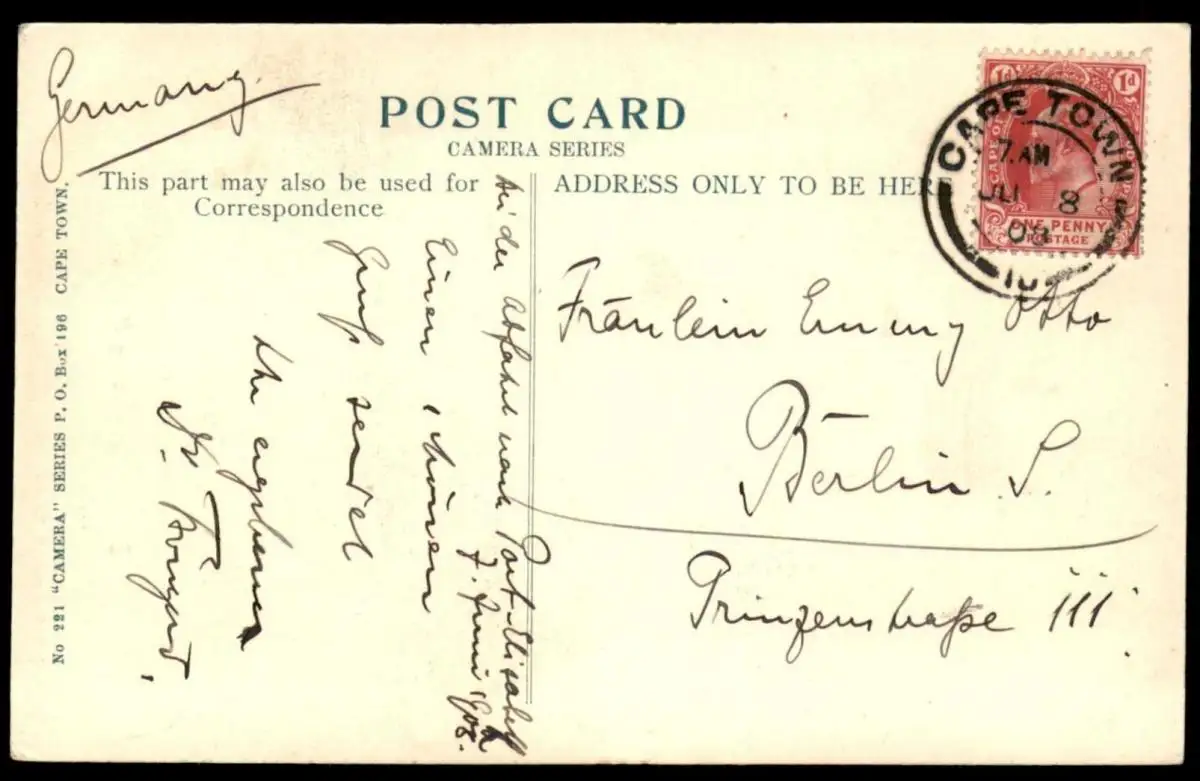 Germany.
POST CARD
CAMERA SERIES
This part may also be used for
Correspondence
ADDRESS ONLY TO BE HERE
No 221 "CAMERA" SERIES P. O. Box 196 CAPE TOWN.
1d 1d
CAPE OF
ONE PENNY
POSTAGE
CAPE TOWN
7. AM
8
08
Abfahrt nach Port-Elisabeth
7. Juni 1908.
Einen schönen
Gruß sendet
Ihr ergebener
Fräulein Emmy Otto
Berlin S.
Prinzenstraße 111